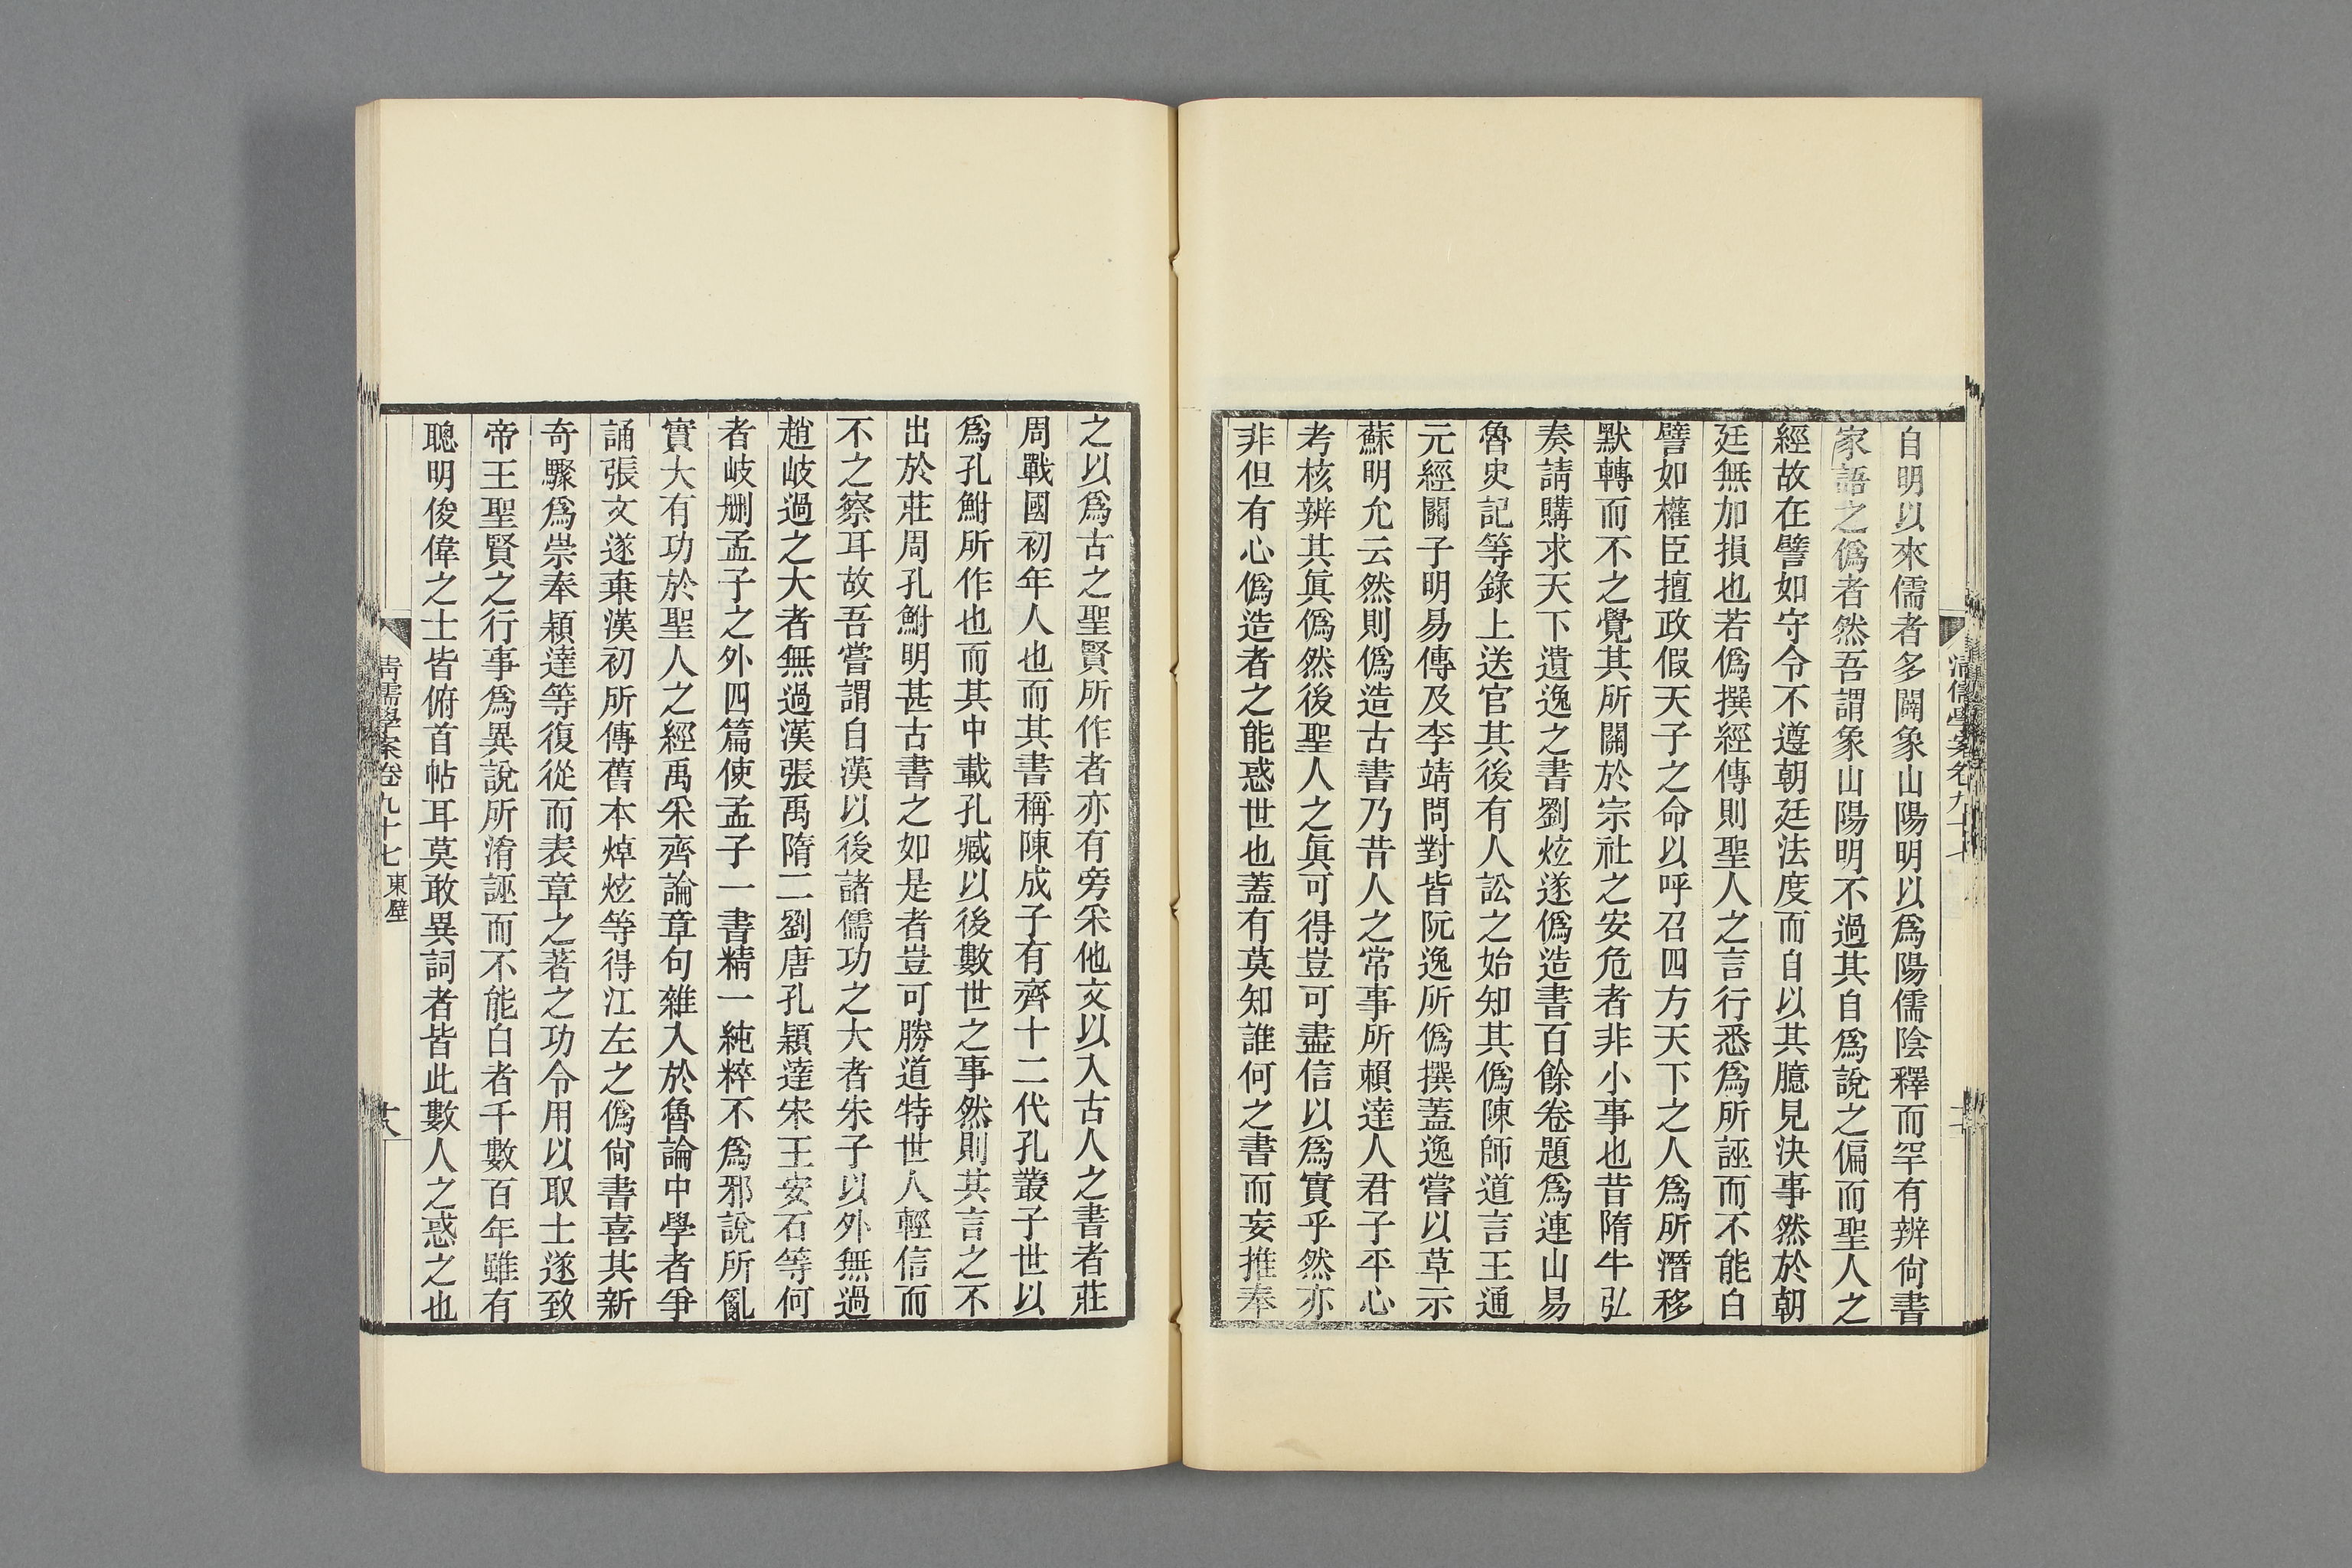 自明以來儒者多闢象山陽明以爲陽儒陰釋而罕有辨尙書
家語之僞者然吾謂象山陽明不過其自爲說之偏而聖人之
經故在譬如守令不遵朝廷法度而自以其臆見決事然於朝
廷無加損也若僞撰經傳則聖人之言行悉爲所誣而不能白
譬如權臣擅政假天子之命以呼召四方天下之人爲所潛移
默轉而不之覺其所關於宗社之安危者非小事也昔隋牛弘
奏請購求天下遺逸之書劉炫遂僞造書百餘卷題爲連山易
魯史記等錄上送官其後有人訟之始知其僞陳師道言王通
元經關子明易傳及李靖問對皆阮逸所僞撰蓋逸嘗以草示
蘇明允云然則僞造古書乃昔人之常事所賴達人君子平心
考核辨其眞僞然後聖人之眞可得豈可盡信以爲實乎然亦
非但有心僞造者之能惑世也蓋有莫知誰何之書而妄推奉
之以爲古之聖賢所作者亦有旁采他文以入古人之書者莊
周戰國初年人也而其書稱陳成子有齊十二代孔叢子世以
爲孔鮒所作也而其中載孔臧以後數世之事然則其言之不
出於莊周孔鮒明甚古書之如是者豈可勝道特世人輕信而
不之察耳故吾嘗謂自漢以後諸儒功之大者朱子以外無過
趙岐過之大者無過漢張禹隋二劉唐孔穎達宋王安石等何
者岐刪孟子之外四篇使孟子一書精一純粹不爲邪說所亂
實大有功於聖人之經禹采齊論章句雜入於魯論中學者爭
誦張文遂棄漢初所傳舊本焯炫等得江左之僞尙書喜其新
奇驟爲崇奉穎達等復從而表章之著之功令用以取士遂致
帝王聖賢之行事爲異說所淆誣而不能白者千數百年雖有
聰明俊偉之士皆俯首帖耳莫敢異詞者皆此數人之惑之也
清儒學案卷九十七 東壁